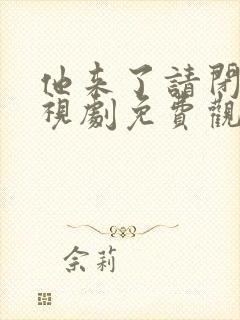 他來了請閉
視劇免費觀
佘莉